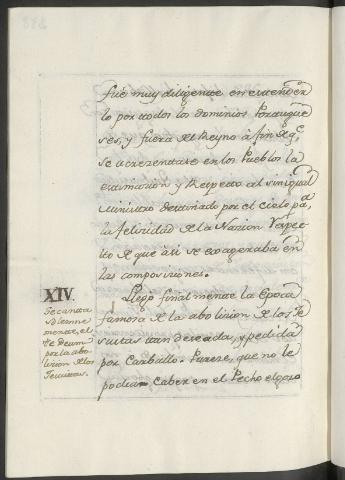 fuè muy diligente en estender
lo por todos los dominios Portugue
ses, y fuera del Reyno à fin de q.e
se acrezentase en los Pueblos la
estimacion y Respecto al sin igual
ministro destinado por el cielo pa.a
la felizidad de la Nazion
que asi se exageraba en
las composiziones.
XIV.
Se canta
solemne
mente, el
te deum
por la abo
lizion de los
Jesuitas.
Llegò finalmente la Epoca
famosa de la abolizion de los Je
suitas tan deseada, y pedida
por Carballo. Pareze, que no le
podia caber en el Pecho el gozo